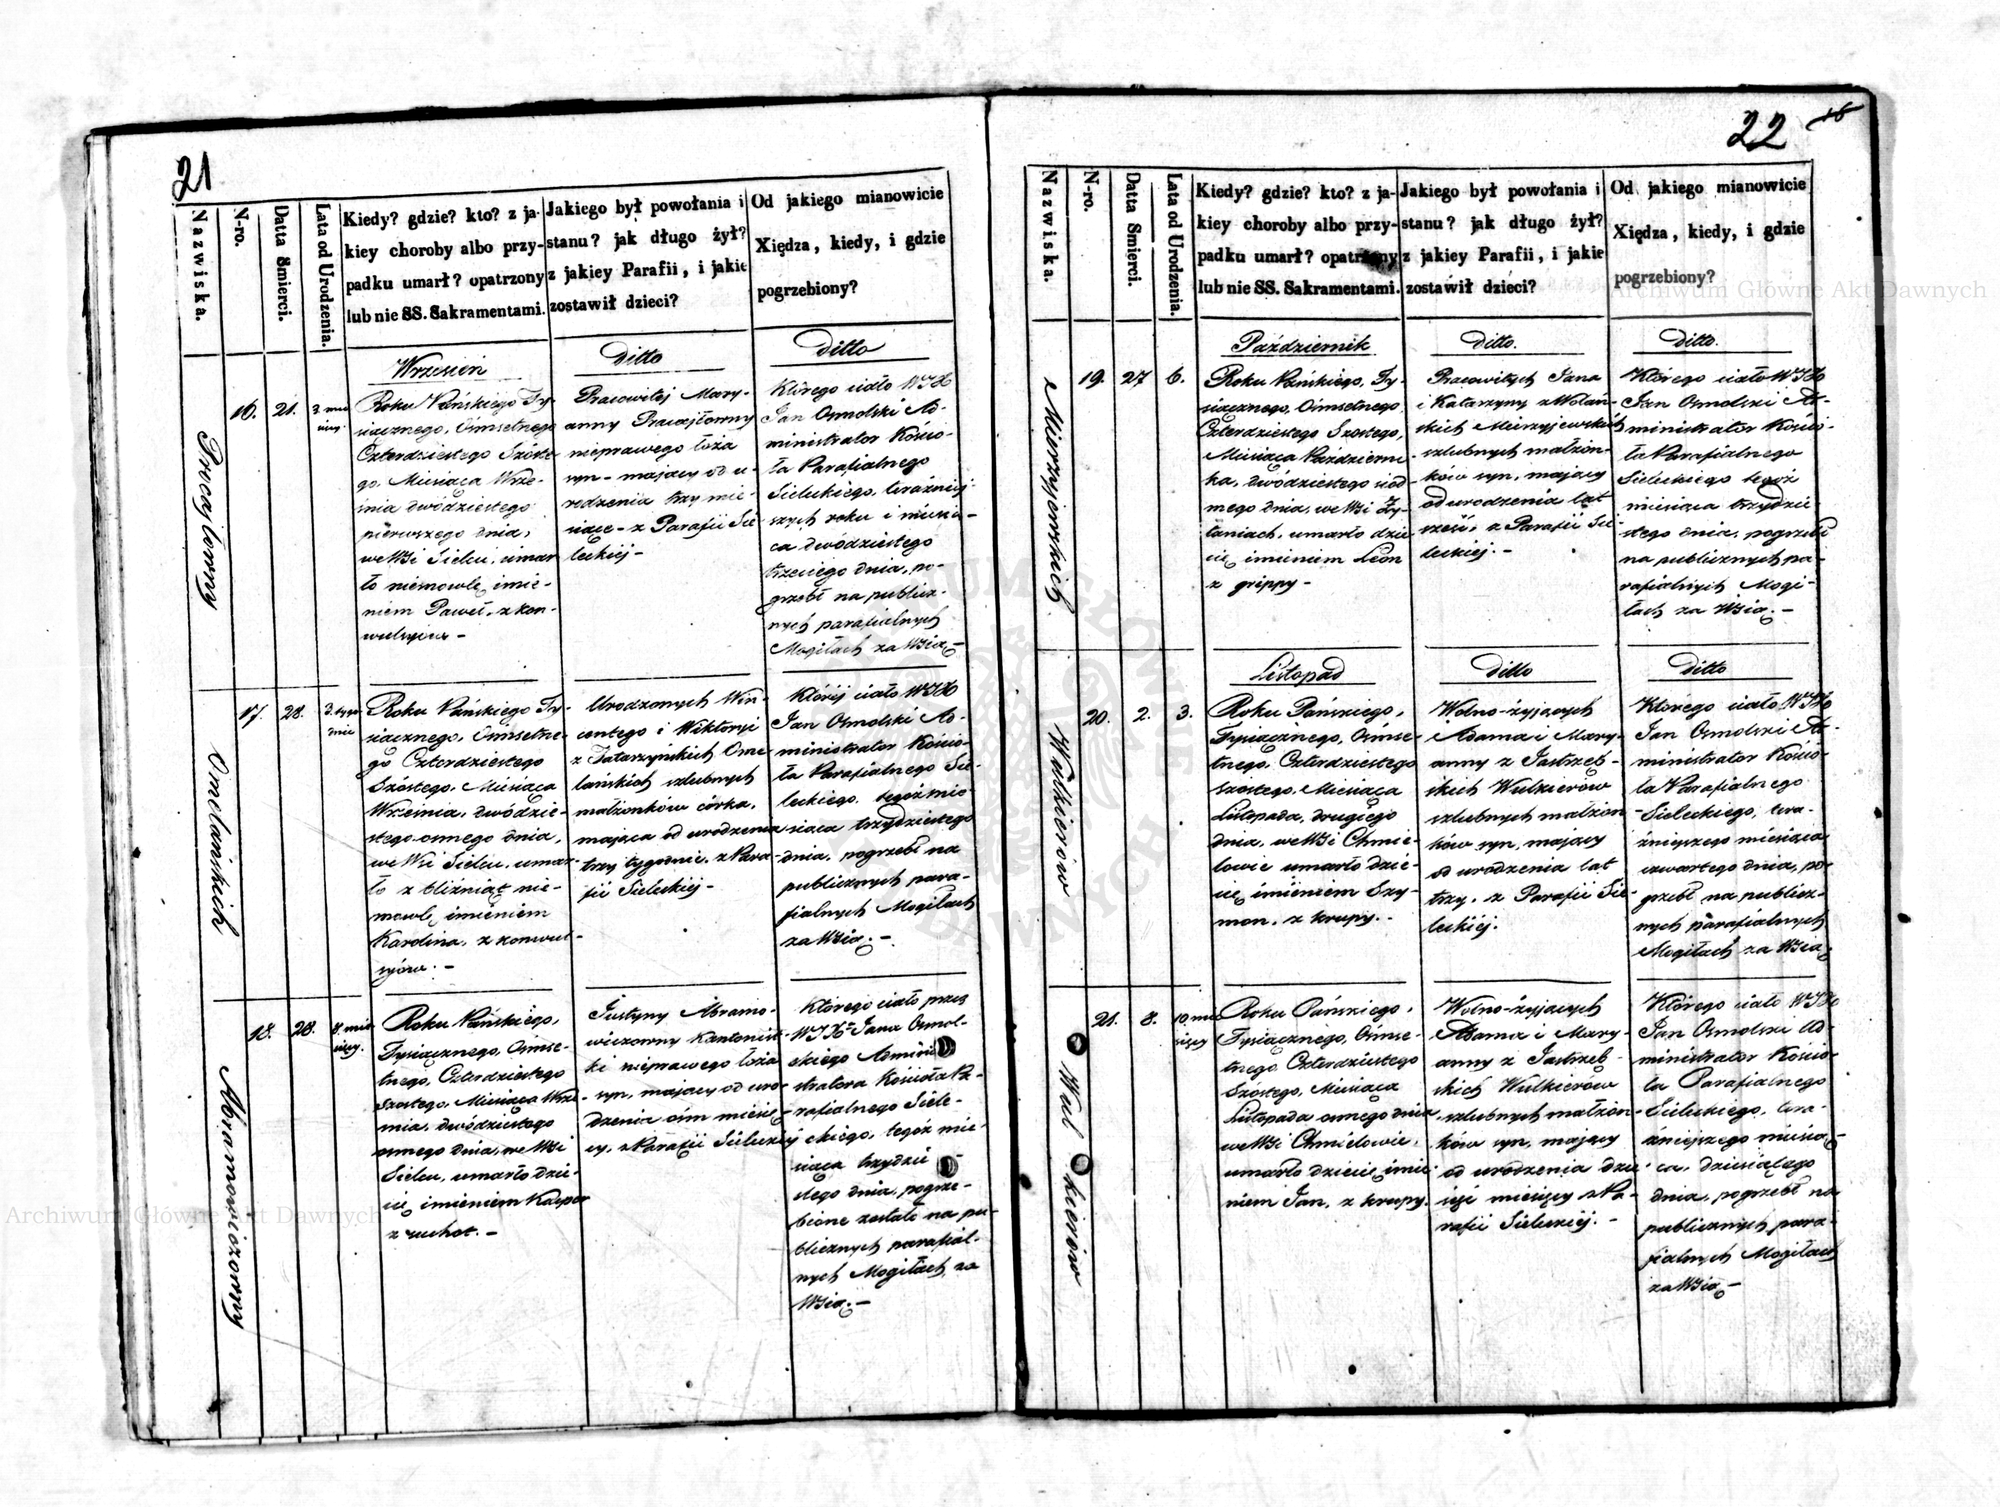 21
Nazwiska.
N-ro.
Datta Smierci.
Lata od Urodzenia.
Kiedy? gdzie? kto? z ja-
kiey choroby albo przy-
padku umarł? opatrzony
lub nie SS. Sakramentami.
Jakiego był powołania i
stanu? jak długo żył?
z jakiey Parafii, i jakie
zostawił dzieci?
Od jakiego mianowicie
Xiędza, kiedy, i gdzie
pogrzebiony?
Wrzesień
ditto
ditto
16.
21.
3. mie
siący.
Roku Pańskiego Ty-
siącznego, Ośmsetnego
Czterdziestego Szóste
go, Miesiąca Wrze-
śnia dwódziestego
pierwszego dnia,
we Wsi Sielcu, umar
ło niemowlę imie-
niem Paweł, z kon-
wulsyów -
Pracowitej Mary-
anny
nieprawego łoża
syn - mający od u-
rodzenia trzy mie-
siące - z Parafii Sie
leckiej -
Którego ciało WJX
Jan Osmolski Ad-
ministrator Kościo-
ła Parafialnego
Sieleckiego, teraźniej
szych roku i miesią-
ca dwódziestego
trzeciego dnia, po-
grzebł na publicz-
nych parafialnych
Mogiłach za Wsią -
Omelańskich
17.
28.
3. tygo
dnie
Roku Pańskiego Ty-
siącznego, Ośmsetne-
go Czterdziestego
Szóstego, Miesiąca
Września, dwódzie-
stego osmego dnia,
we Wsi Sielcu, umar-
ło z bliźniąt nie-
mowlę imieniem
Karolina, z konwul-
syów. -
Urodzonych Win-
centego i Wiktoryi
z Tatarzyńskich Ome
lańskich szlubnych
małżonków córka,
mająca od urodzenia
trzy tygodnie, z Para-
fii Sieleckiej -
Której ciało WJX
Jan Osmolski Ad-
ministrator Kościo-
ła Parafialnego Sie-
leckiego, tegoż mie
siąca trzydziestego
dnia, pogrzebł na
publicznych para-
fialnych Mogiłach
za Wsią. -
Abramowiczowny
18.
28.
8. mie
sięcy.
Roku Pańskiego,
Tysiącznego, Ośmse-
tnego, Czterdziestego
Szóstego, Miesiąca Wrze
śnia, dwódziestego
osmego dnia, we Wsi
Sielcu, umarło dzie-
cię imieniem Kasper
z suchot. -
Justyny Abramo-
wiczowny Kantonist-
ki nieprawego łoża
syn, mający od uro-
dzenia ośm miesię-
cy, z Parafii Sieleckiej
Którego ciało przez
WJX Jana Osmol-
skiego Admini
stratora Kościoła Pa-
rafialnego Siele-
ckiego, tegoż mie-
siąca trzydzie
stego dnia, pogrze-
bione zostało na pu-
blicznych parafial-
nych Mogiłach, za
Wsią. -
22
Nazwiska.
N-ro.
Datta Smierci.
Lata od Urodzenia.
Kiedy? gdzie? kto? z ja-
kiey choroby albo przy-
padku umarł? opatrzony
lub nie SS. Sakramentami.
Jakiego był powołania i
stanu? jak długo żył?
z jakiey Parafii, i jakie
zostawił dzieci?
Od jakiego mianowicie
Xiędza, kiedy, i gdzie
pogrzebiony?
Październik
ditto.
ditto.
Mierzyjewskich
19.
27
6.
Roku Pańskiego, Ty-
siącznego, Ośmsetnego,
Czterdziestego Szóstego,
Miesiąca Październi
ka, dwódziestego siód
mego dnia, we Wsi Ży-
taniach, umarło dzie
cię, imieniem Leon
z grippy -
Pracowitych Jana
i Katarzyny z Wolań-
skich Mierzyjewskich
szlubnych małżon-
ków syn, mający
od urodzenia lat
sześć, z Parafii Sie
leckiej. -
Którego ciało WJX
Jan Osmolski Ad-
ministrator Kościo-
ła Parafialnego
Sieleckiego tegoż
miesiąca trzydzie
stego dnia, pogrzebł
na publicznych pa-
rafialnych Mogi-
łach za Wsią. -
Listopad
ditto
ditto
Wulkierów
20.
2.
3.
Roku Pańskiego,
Tysiącznego, Ośmse-
tnego, Czterdziestego
Szóstego, Miesiąca
Listopada, drugiego
dnia, we Wsi Chmie-
lowie umarło dzie-
cię imieniem Szy-
mon, z krupy. -
Wolno-żyjących
Adama i Mary-
anny z Jastrzęb-
skich Wulkierów
szlubnych małżon
ków syn, mający
od urodzenia lat
trzy, z Parafii Sie-
leckiej.
Którego ciało WJX
Jan Osmolski Ad-
ministrator Kościo-
ła Parafialnego
Sieleckiego, tera-
źniejszego miesiąca
czwartego dnia, po-
grzebł na publicz-
nych parafialnych
Mogiłach za Wsią.
Wulkierów
21.
8.
10. mie
sięcy
Roku Pańskiego,
Tysiącznego, Ośmse-
tnego Czterdziestego
Szóstego, Miesiąca
Listopada osmego dnia
we Wsi Chmielowie,
umarło dziecię, imie-
niem Jan, z krupy.
Wolno-żyjących
Adama i Mary-
anny z Jastrzęb-
skich Wulkierów
szlubnych małżon-
ków syn, mający
od urodzenia dzie
sięć miesięcy z Pa-
rafii Sieleckiej. -
Którego ciało WJX
Jan Osmolski Ad-
ministrator Kościo-
ła Parafialnego
Sieleckiego, tera-
źniejszego miesią-
ca, dziesiątego
dnia, pogrzebł na
publicznych para-
fialnych Mogiłach
za Wsią -
Archiwum Główne Akt Dawnych
Archiwum Główne Akt Dawnych